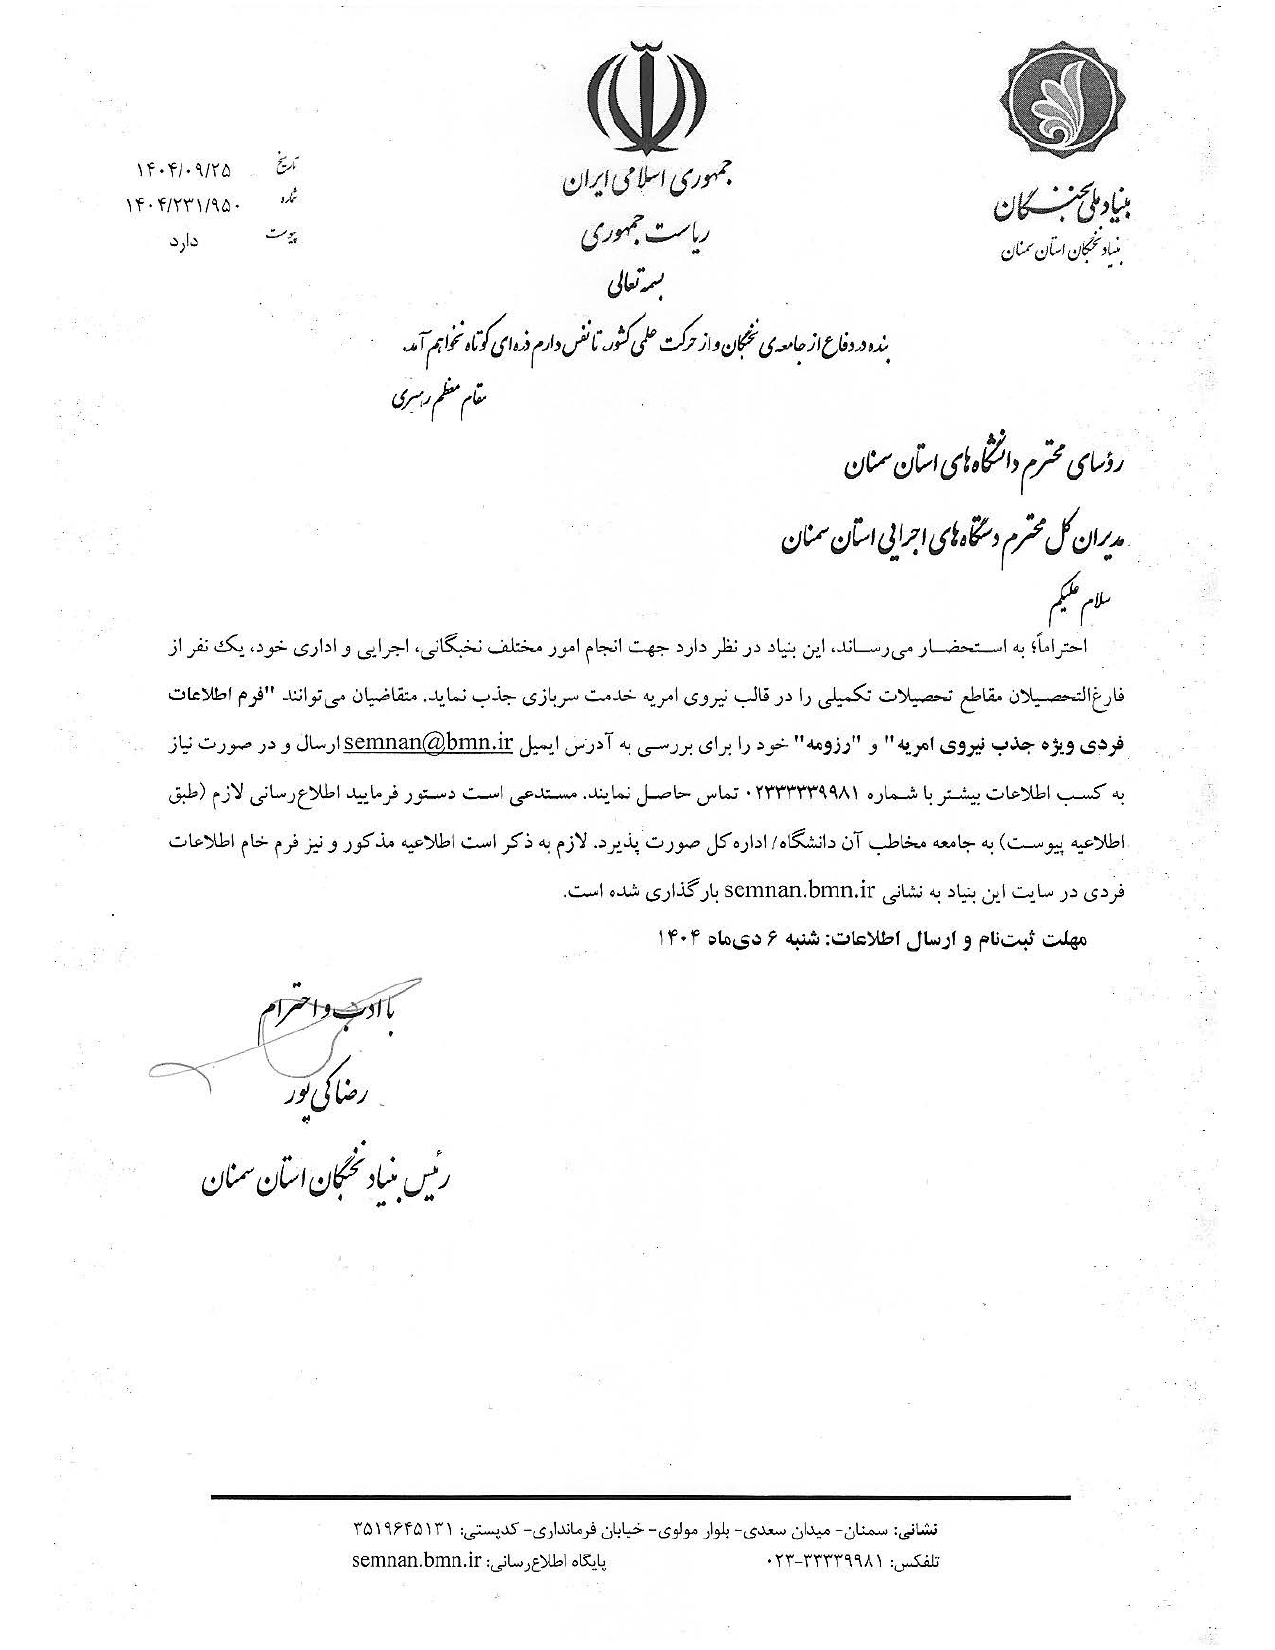 بنیاد ملی نخبگان
بنیاد نخبگان استان سمنان
جمهوری اسلامی ایران
ریاست جمهوری
بسمه تعالی
تاریخ ۱۴۰۴/۰۹/۲۵
شماره ۱۴۰۴/۲۳۱/۹۵۰
پیوست دارد
بنده در دفاع از جامعه‌ی نخبگان و از حرکت علمی کشور، تا نفس دارم ذره‌ای کوتاه نخواهم آمد.
مقام معظم رهبری
رؤسای محترم دانشگاه‌های استان سمنان
مدیران کل محترم دستگاه‌های اجرایی استان سمنان
سلام علیکم
احتراماً؛ به استحضار می‌رساند، این بنیاد در نظر دارد جهت انجام امور مختلف نخبگانی، اجرایی و اداری خود، یک نفر از
فارغ‌التحصیلان مقاطع تحصیلات تکمیلی را در قالب نیروی امریه خدمت سربازی جذب نماید. متقاضیان می‌توانند "فرم اطلاعات
فردی ویژه جذب نیروی امریه" و "رزومه" خود را برای بررسی به آدرس ایمیل semnan@bmn.ir ارسال و در صورت نیاز
به کسب اطلاعات بیشتر با شماره ۰۲۳۳۳۳۳۹۹۸۱ تماس حاصل نمایند. مستدعی است دستور فرمایید اطلاع‌رسانی لازم (طبق
اطلاعیه پیوست) به جامعه مخاطب آن دانشگاه/ اداره‌کل صورت پذیرد. لازم به ذکر است اطلاعیه مذکور و نیز فرم خام اطلاعات
فردی در سایت این بنیاد به نشانی semnan.bmn.ir بارگذاری شده است.
مهلت ثبت‌نام و ارسال اطلاعات: شنبه ۶ دی‌ماه ۱۴۰۴
با ادب و احترام
رضا کی پور
رئیس بنیاد نخبگان استان سمنان
نشانی: سمنان- میدان سعدی- بلوار مولوی- خیابان فرمانداری- کدپستی: ۳۵۱۹۶۴۵۱۳۱
تلفکس: ۰۲۳-۳۳۳۳۹۹۸۱ پایگاه اطلاع‌رسانی: semnan.bmn.ir